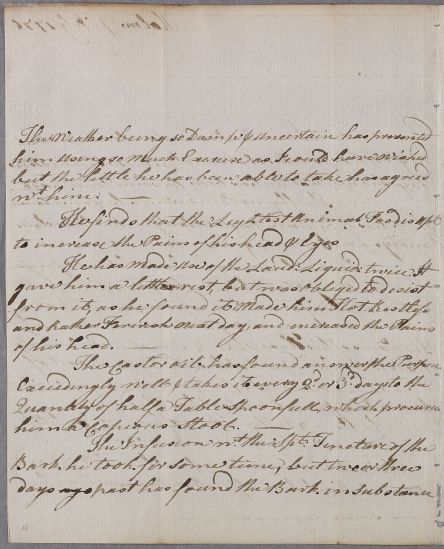 The Weather being so Damp & uncertain has prevented
him using so much Exercise as I could have wished
but the little he has been able to take has agreed
wt. him. —
He finds that the Lightest Animal Food is apt
to increase the Pains of his head & Eyes
He has Made Use of the Laud: Liquid: twice It
gave him a little rest but was obliged to desist
from it, as he found it Made him Hot Restless
and rather Feverish next day, and increased the Pains
of his head. —
The Castor oil has found answer the Purpose
Exceedingly well & takes it every 2d. or 3d. day to the
Quantity of half a Table Spoonfull, which procures
him a Copious Stool. —
The Infusion wt. the Spt. Tincture of the
Bark he took for some time, but two or three
days ago past has found the Bark in Substance